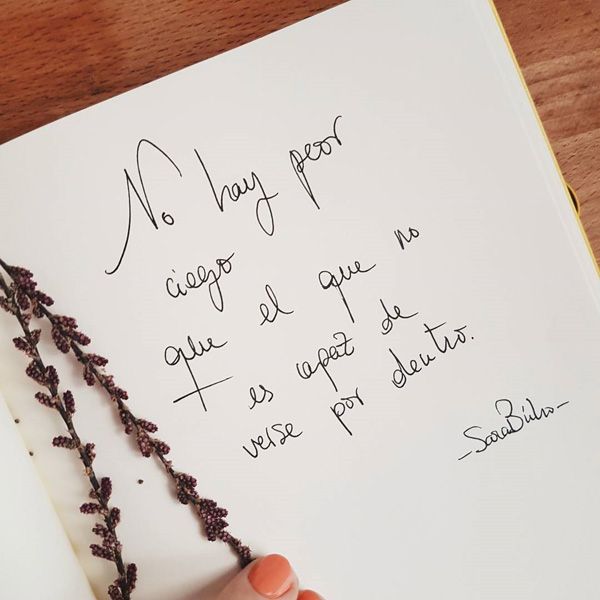 No hay peor
ciego
que el que no
+ es capaz de
verse por dentro.
-Sara Búho-